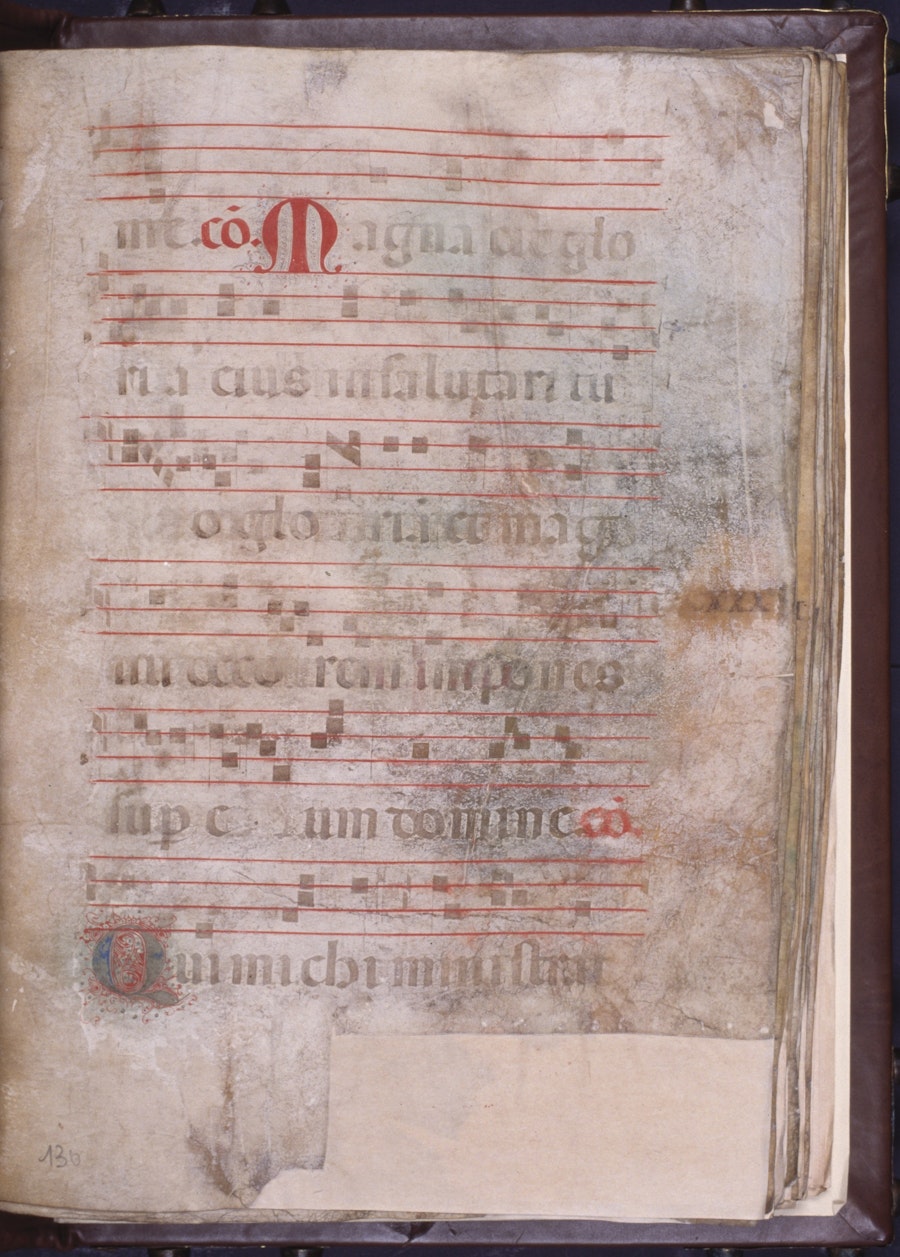 mīe. cō. Magna est glo
ria eius in salutari tu
o. gloriam et mag
nū deco rem impones
sup e um domine. cō.
CXXX
Qui michi ministrat
130